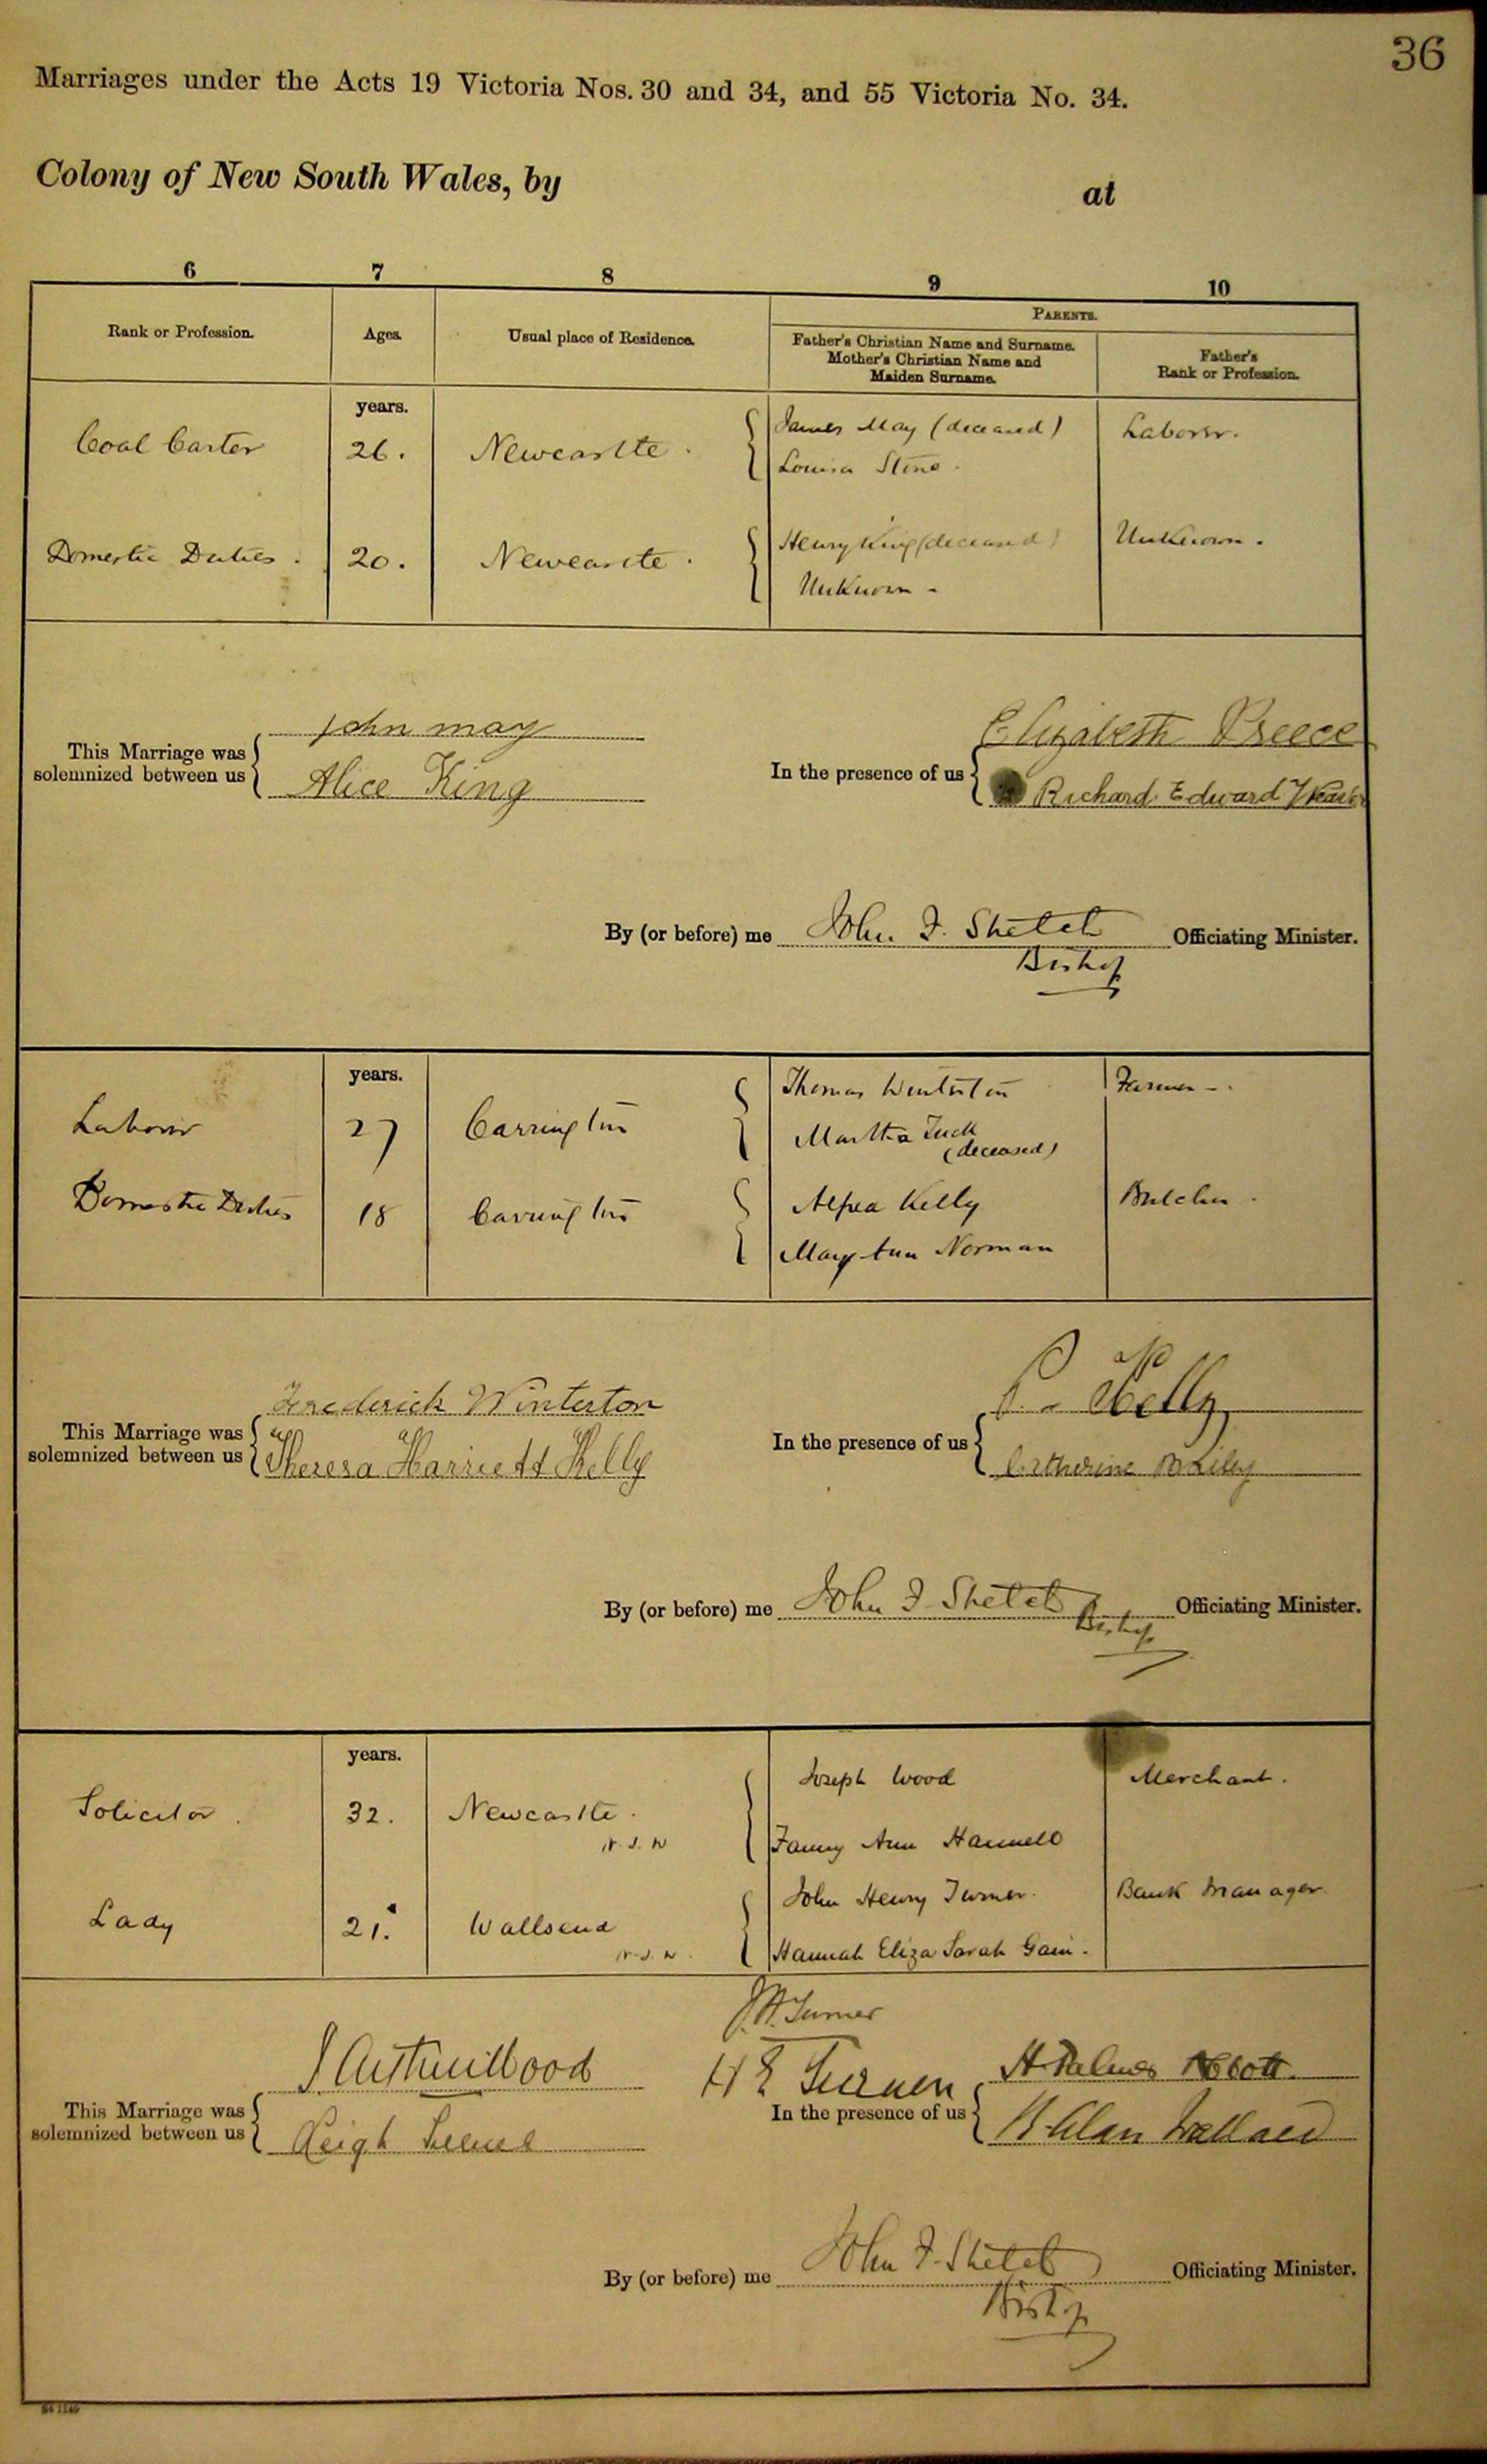 36
Marriages under the Acts 19 Victoria Nos. 30 and 34, and 55 Victoria No. 34.
Colony of New South Wales, by at
6 7 8 9 10
Rank or Profession. Ages. Usual place of Residence. PARENTS.
Father's Christian Name and Surname.
Mother's Christian Name and
Maiden Surname.
Father's
Rank or Profession.
years.
Coal Carter 26. Newcastle. James May (deceased) Laborer.
Louisa Stone.
Domestic Duties. 20. Newcastle. Henry King (deceased) Unknown.
Unknown -
This Marriage was
solemnized between us
john may
Alice King
In the presence of us
Elizabeth Preece
Richard Edward
By (or before) me John F. Stretch Officiating Minister.
Bishop
years.
Labourer 27 Carrington Thomas Winterton Farmer -.
Martha Tuck
(deceased)
Domestic Duties 18 Carrington Alfred Kelly Butcher.
Mary Ann Norman
This Marriage was
solemnized between us
Frederick Winterton
Theresa Harriett Kelly
In the presence of us
Kelly
Catherine
By (or before) me John F. Stretch Officiating Minister.
Bishop
years.
Solicitor. 32. Newcastle. Joseph Wood Merchant.
N.S.W
Fanny Ann Hannell
Lady 21. Wallsend John Henry Turner. Bank Manager
N.S.W. Hannah Eliza Sarah Gain.
J.H. Turner
J Arthur Wood H E Turner H Palmer Abbott.
This Marriage was
solemnized between us
Leigh Turner
In the presence of us
Alan
By (or before) me John F. Stretch Officiating Minister.
Bishop